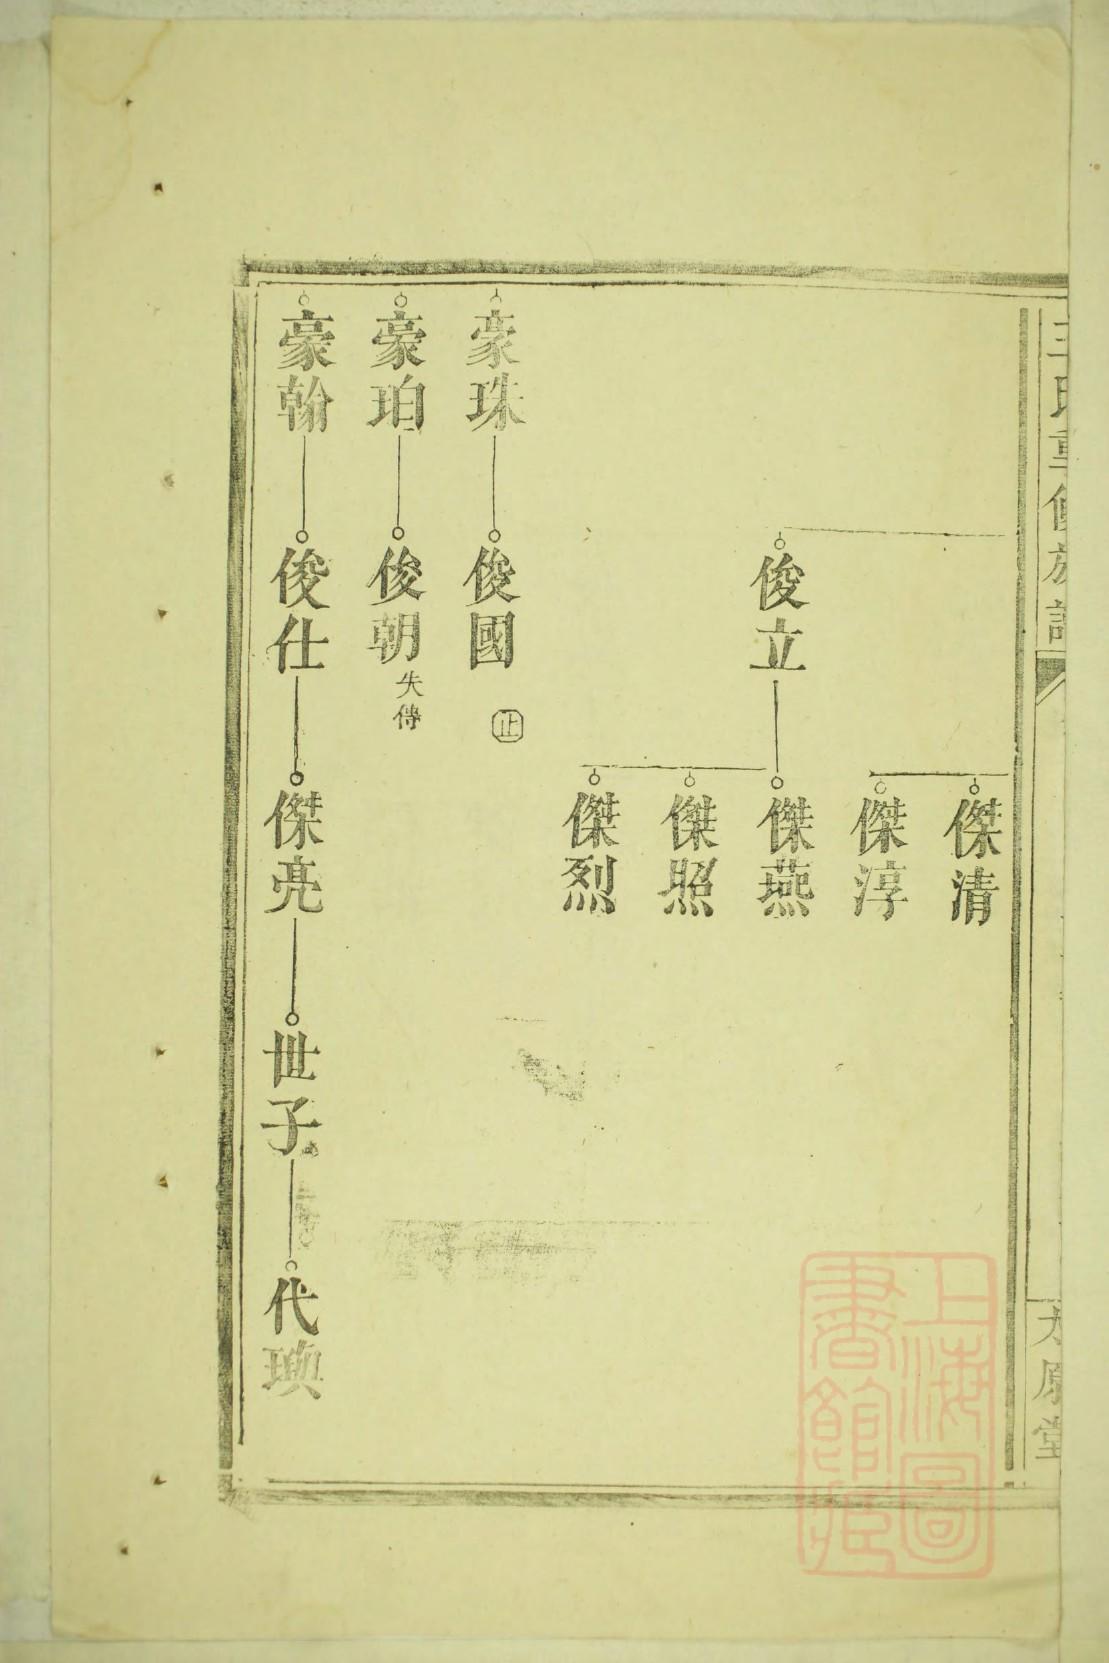 王氏重修族譜
太原堂
傑清
傑淳
俊立
傑燕
傑照
傑烈
豪珠
俊國
止
豪珀
俊朝
失傳
豪翰
俊仕
傑亮
世子
代璵
上海圖
書館藏